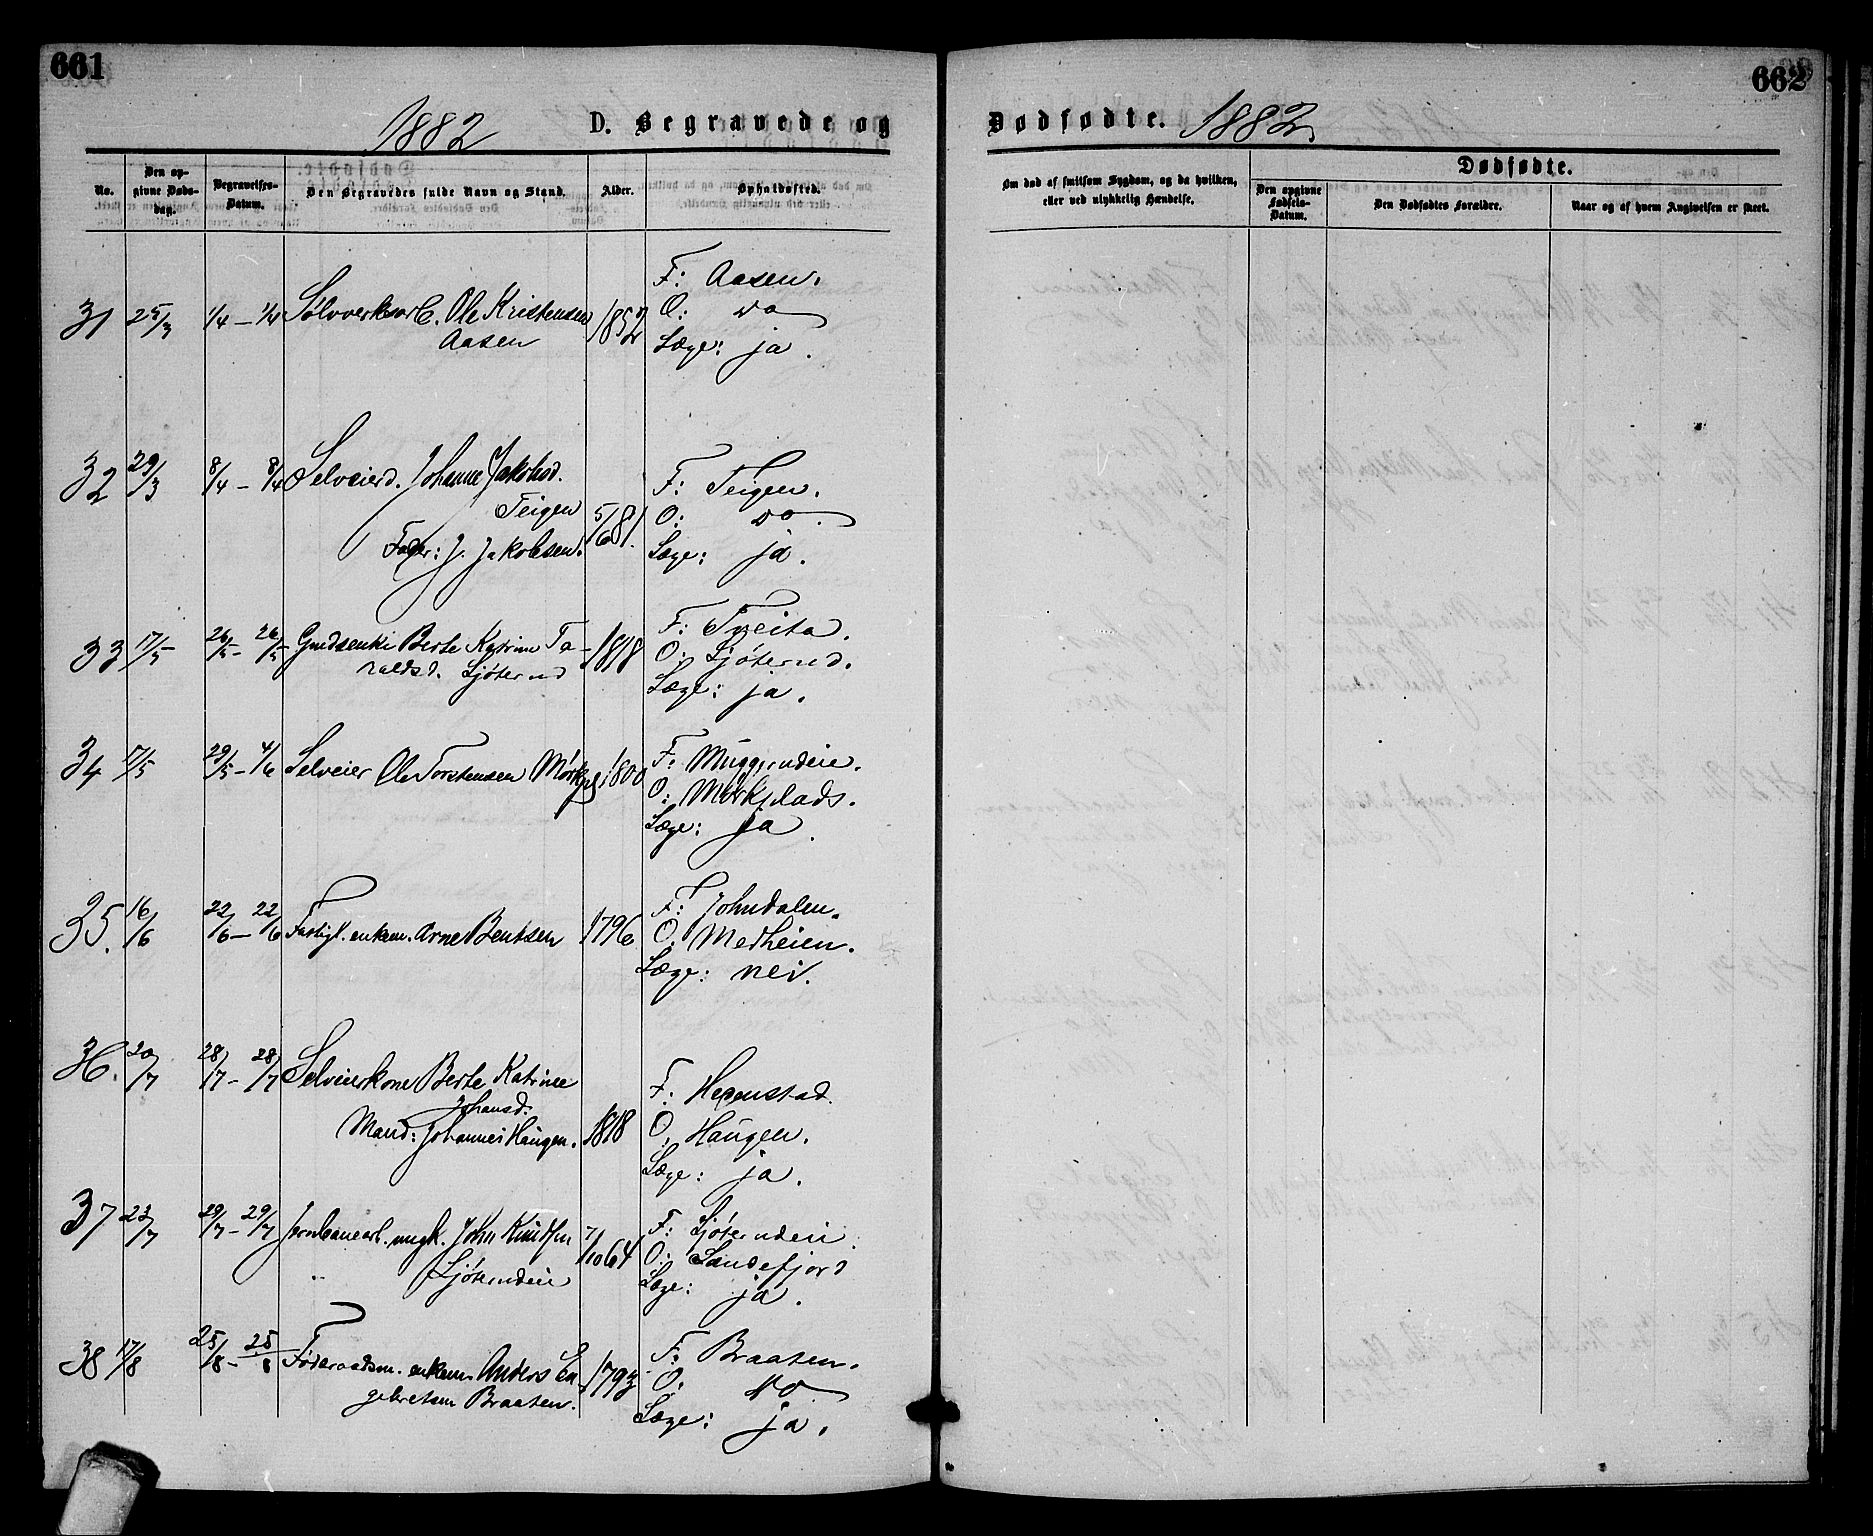 661
662
1882 D. Begravede og
Dødfødte. 1882.
No.
Den op-
givne Døds-
dag.
Begravelses-
Datum.
Den Begravedes fulde Navn og Stand.
Alder.
Opholdssted.
Om død af smitsom Sygdom, og da hvilken,
eller ved ulykkelig Hændelse.
Dødfødte.
Den opgivne
Fødsels-
Datum.
Den Dødfødtes Forældre.
Naar og af hvem Angivelsen er skeet.
31 25/3 1/4 – 1/4 Sølvverksarb. Ole Kristensen
Aasen
F: Aasen.
O: do
Læge: ja.
32 29/3 8/4 – 8/4 Selveierd. Johanne Jakobsd.
Teigen 5/6 81.
Fader: J. Jakobsen.
F: Teigen.
O: do.
Læge: ja.
33 17/5 26/5 – 26/5 Gmdsenke Berte Katrine Ta-
raldsd. Ljøterud 1818
F: Tveita.
O: Ljøterud.
Læge: ja.
34 17/5 29/5 – 4/6 Selveier Ole Torstensen 1800
F: Muggerudeie.
O: Mørkplads.
Læge: ja.
35. 16/6 22/6 – 22/6 Fattigl. enkem. Arne Bentsen 1796
F: Johndalen.
O: Medheien.
Læge: nei.
36. 20/7 28/7 – 28/7 Selveierkone Berte Katrine
Johansd.
Mand: Johannes Haugen. 1818
F: Hegenstad.
O: Haugen.
Læge: ja.
37 23/7 29/7 – 29/7 Jernbanearb. ungk. John Knudsen 7/10 64
Ljøterudeie
F: Ljøterudeie.
O: Sandefjord
Læge: ja.
38 17/8 25/8 – 25/8 Føderaadsm. enkem. Anders En-
gebretsen Braaten. 1793
F: Braaten.
O: do
Læge: ja.